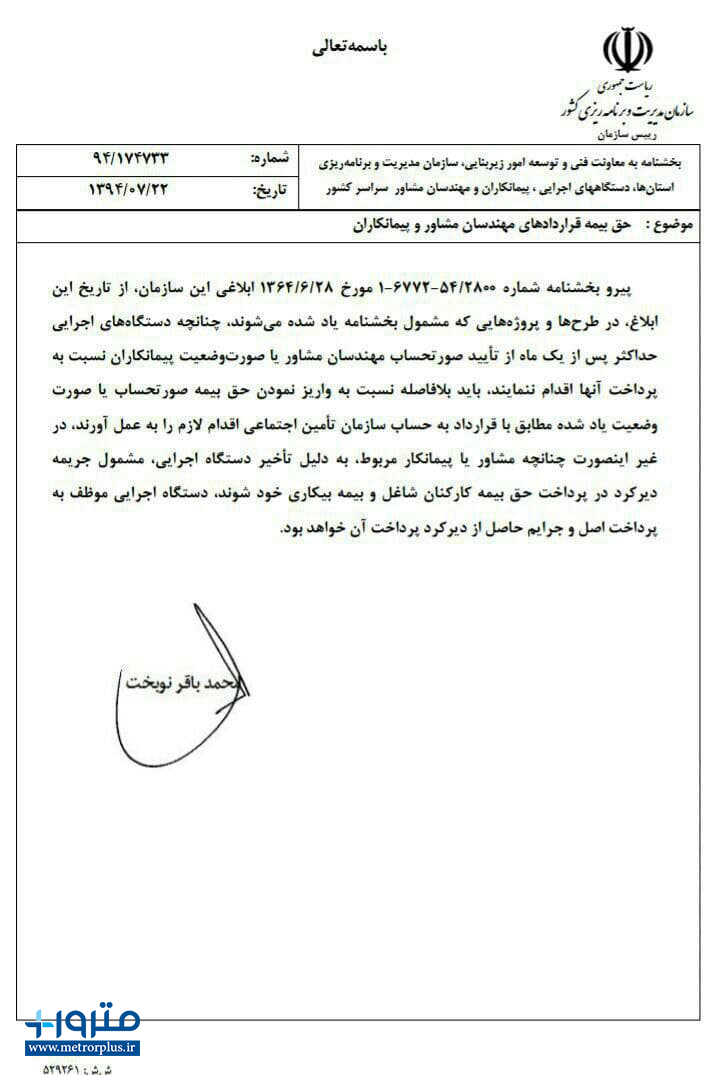 باسمه‌تعالی
ریاست جمهوری
سازمان مدیریت و برنامه ریزی کشور
رییس سازمان
بخشنامه به معاونت فنی و توسعه امور زیربنایی، سازمان مدیریت و برنامه‌ریزی
استان‌ها، دستگاههای اجرایی ، پیمانکاران و مهندسان مشاور سراسر کشور
شماره: ۹۴/۱۷۴۷۳۳
تاریخ: ۱۳۹۴/۰۷/۲۲
موضوع : حق بیمه قراردادهای مهندسان مشاور و پیمانکاران
پیرو بخشنامه شماره ۵۴/۲۸۰۰-۶۷۷۲-۱ مورخ ۱۳۶۴/۶/۲۸ ابلاغی این سازمان، از تاریخ این
ابلاغ، در طرح‌ها و پروژه‌هایی که مشمول بخشنامه یاد شده می‌شوند، چنانچه دستگاه‌های اجرایی
حداکثر پس از یک ماه از تأیید صورتحساب مهندسان مشاور یا صورت‌وضعیت پیمانکاران نسبت به
پرداخت آنها اقدام ننمایند، باید بلافاصله نسبت به واریز نمودن حق بیمه صورتحساب یا صورت
وضعیت یاد شده مطابق با قرارداد به حساب سازمان تأمین اجتماعی اقدام لازم را به عمل آورند، در
غیر اینصورت چنانچه مشاور یا پیمانکار مربوط، به دلیل تأخیر دستگاه اجرایی، مشمول جریمه
دیرکرد در پرداخت حق بیمه کارکنان شاغل و بیمه بیکاری خود شوند، دستگاه اجرایی موظف به
پرداخت اصل و جرایم حاصل از دیرکرد پرداخت آن خواهد بود.
محمد باقر نوبخت
مترور+
www.metrorplus.ir
ش.ش: ۵۲۹۲۶۱